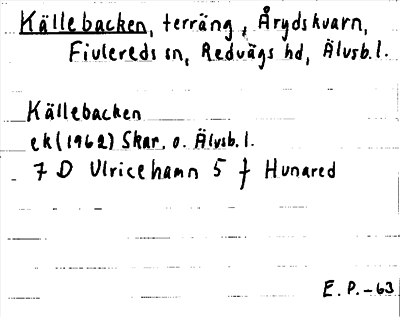 Källebacken, terräng, Årydskvarn,
Fivlereds sn, Redvägs hd, Älvsb.l.
Källebacken
ek(1962) Skar. o. Älvsb.l.
7 D Ulricehamn 5 f Hunared
E. P. -63